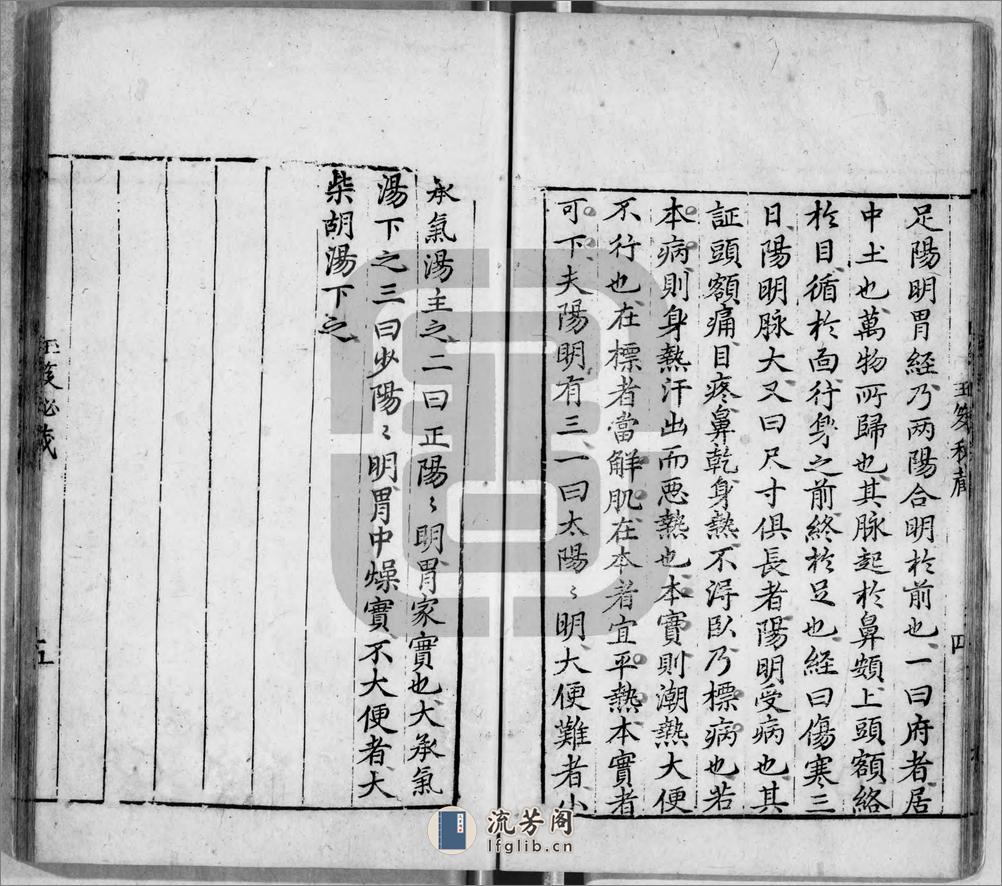 足陽明胃經乃两陽合明於前也一曰府者居
中土也萬物所歸也其脉起於鼻頞上頭額絡
於目循於面行身之前終於足也經曰傷寒三
日陽明脉大又曰尺寸俱長者陽明受病也其
証頭額痛目疼鼻乾身熱不得臥乃標病也若
本病則身熱汗出而惡熱也本實則潮熱大便
不行也在標者當解肌在本者宜平熱本實者
可下夫陽明有三一曰太陽〻明大便難者小
四
承氣湯主之二曰正陽〻明胃家實也大承氣
湯下之三曰少陽〻明胃中燥實不大便者大
柴胡湯下之
五
流芳阁
lfglib.cn